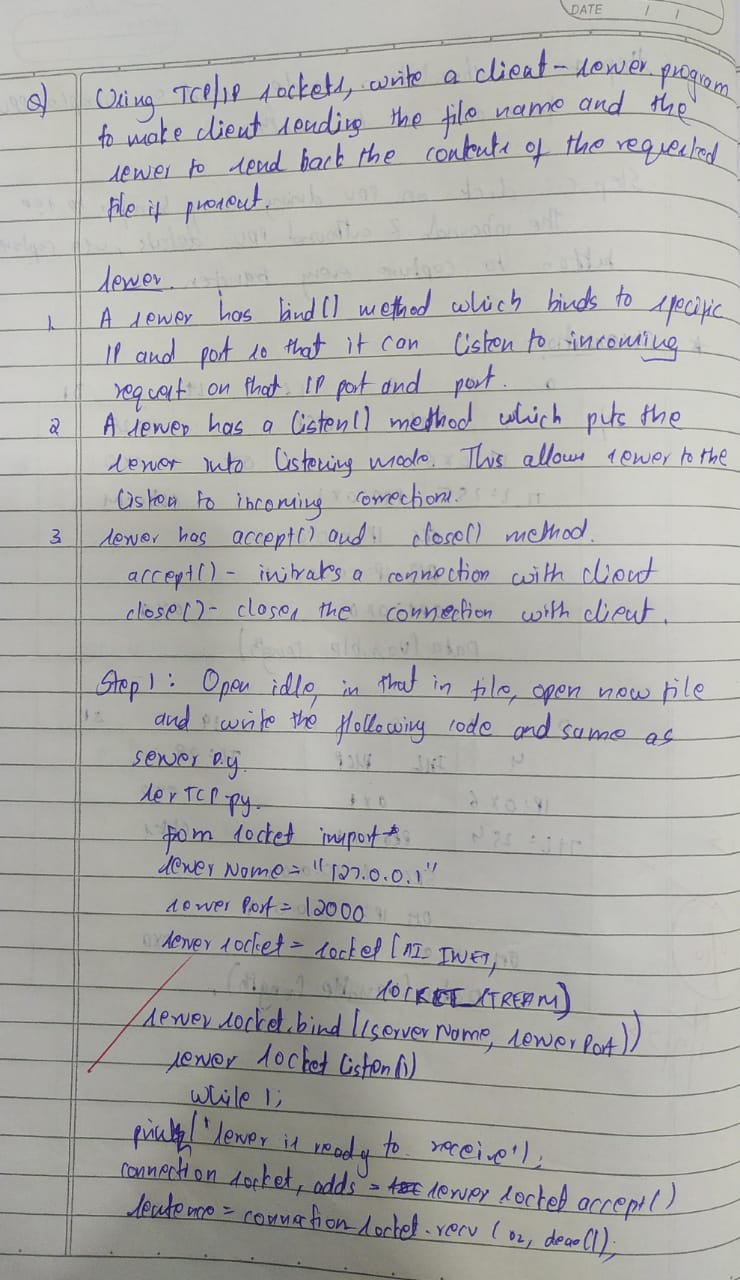 DATE / /
Q) Using TCP/IP sockets, write a client - server program
to make client sending the file name and the
server to send back the contents of the requested
file if present.
server.
1. A server has bind() method which binds to specific
IP and port so that it can listen to incoming
request on that IP port and port.
2 A server has a listen() method which puts the
server into listening mode. This allows server to the
listen to incoming connections.
3 server has accept() and close() method.
accept() - initiates a connection with client
close() - closes the connection with client.
Step 1: Open idle, in that in file, open new file
and write the following code and same as
server
serTCP.py.
from socket import *
server Name = "127.0.0.1"
server Port = 12000
server socket = socket (AF_INET,
SOCKET STREAM)
server socket.bind ((server Name, server Port))
server socket listen(1)
while 1;
print ('server is ready to receive');
connection socket, adds = server socket accept()
sentence = connection socket.recv (